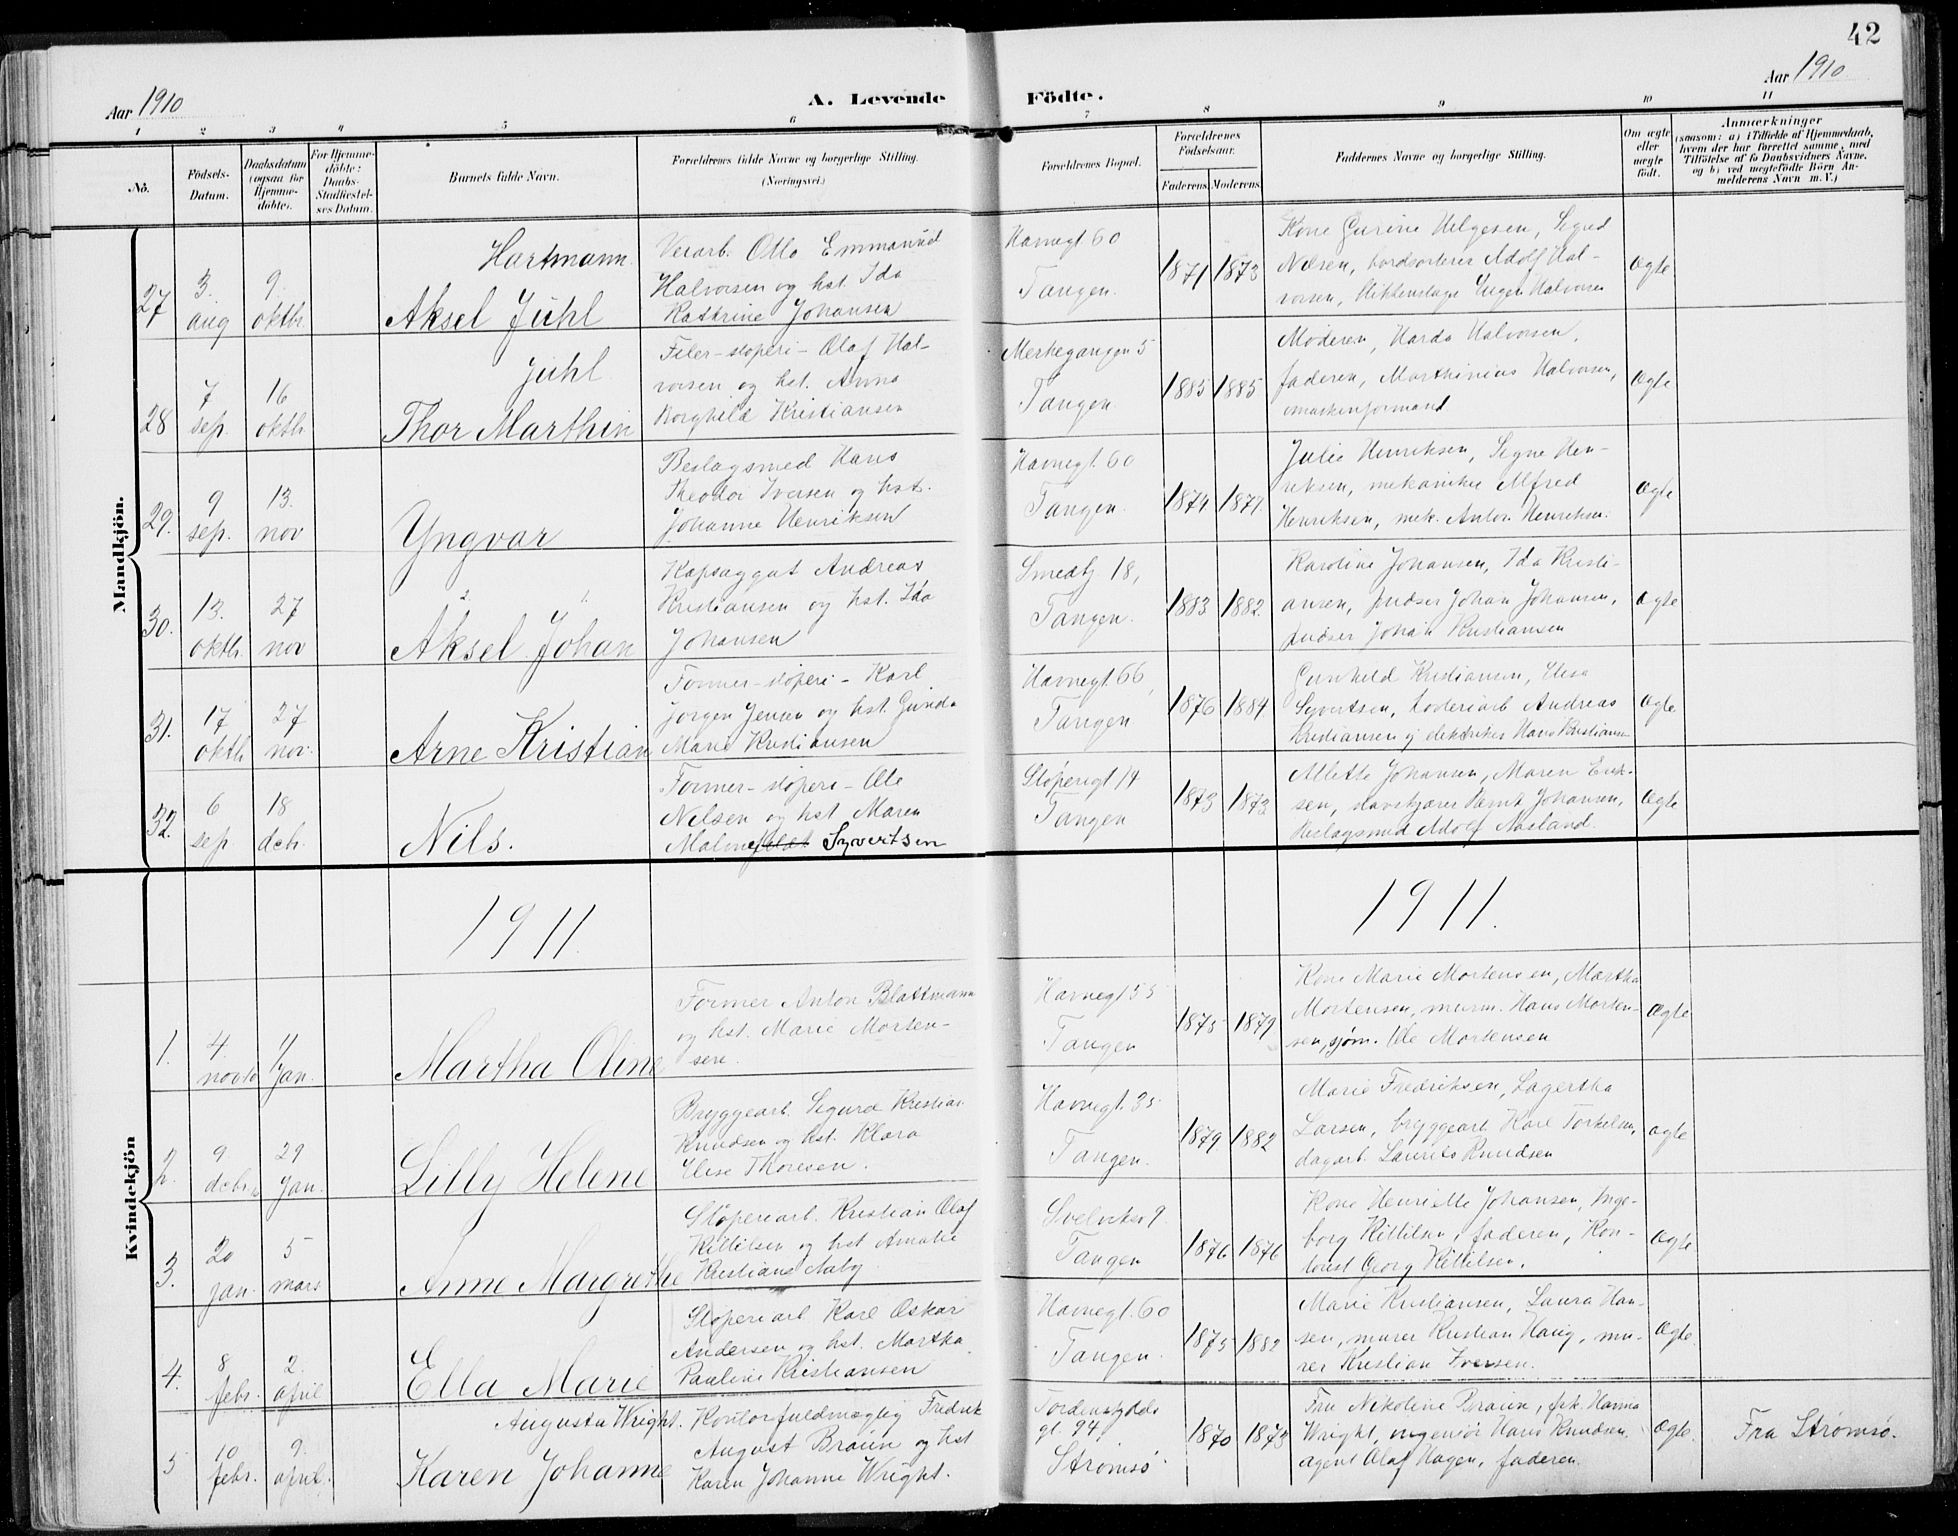 42
Aar 1910
A. Levende Födte.
Aar 1910
1 2 3 4 5 6 7 8 9 10 11
No.
Födsels-
Datum.
Daabsdatum
(ogsaa for
Hjemme-
döbte).
For Hjemme-
döbte:
Daabs-
Stadfæstel-
ses Datum.
Barnets fulde Navn.
Forældrenes fulde Navne og borgerlige Stilling.
(Næringsvei.)
Forældrenes Bopæl.
Forældrenes
Födselsaar.
Faderens. Moderens.
Faddernes Navne og borgerlige Stilling.
Om ægte
eller
uægte
födt.
Anmærkninger
(saasom: a) i Tilfælde af Hjemmedaab,
hvem der har forrettet samme, med
Tilföielse af to Daabsvidners Navne,
og b) ved uægtefödte Börn An-
melderens Navn m. V.)
Mandkjön.
27
3.
aug
9.
oktbr.
Hartmann
Aksel Juhl
Verarb. Otto Emmanuel
Halvorsen og hst. Ida
Kathrine Johansen
Havnegt 60
Tangen.
1871 1873
Kone Gurine Helgesen, Sigrid
Nilsen, bordsorterer Adolf Hal-
vorsen, Eugen Halvorsen
Ægte
28
7
sep.
16
oktbr.
Juhl
Thor Marthin
Filer-støperi- Olaf Hal-
vorsen og hst. Anna
Borghild Kristiansen
5
Tangen.
1885 1885
Moderen, Harda Halvorsen,
faderen, Marthinius Halvorsen,
maskinformand
Ægte
29.
9
sep.
13.
nov
Yngvar
Beslagsmed Hans
Theodor Iversen og hst.
Johanne Henriksen
Havnegt. 60
Tangen.
1874 1877.
Julie Henriksen, Signe Hen-
riksen, mekaniker Alfred
Henriksen, mek. Anton Henriksen.
Ægte
30.
13.
oktbr.
27
nov
2. 1.
Aksel Johan
Andreas
Kristiansen og hst. Ida
Johansen
Smedbj 18,
Tangen.
1883 1882.
Karoline Johansen, Ida Kristi-
ansen, pudser Johan Johansen,
pudser Johan Kristiansen
Ægte
31.
17
oktbr
27
nov.
Arne Kristian
Former-støperi- Karl
Jørgen Jensen og hst. Gunda
Marie Kristiansen
Havnegt. 66,
Tangen
1876 1884
Gunhild Kristiansen, Elisa
Syvertsen, Andreas
Kristiansen, elektriker Hans Kristiansen
Ægte
32.
6
sep
18
debr.
Nils.
Former-støperi- Ole
Nilsen og hst Maren
Maline Syvertsen
Støperigt 14
Tangen
1873 1873
Alette Johansen, Maren Erik-
sen, Bernt Johansen,
Beslagsmed Adolf Aasland.
Ægte
1911.
1911.
Kvindekjön
1.
4.
novbr
1/
Jan.
Martha Oline
Former Anton Blattmann
og hst. Marie Morten-
sen.
Havnegt 55
Tangen
1875 1879
Kone Marie Mortensen, Martha
Mortensen, murm. Hans Morten-
sen, sjøm. Ole Mortensen
Ægte
2.
9.
debr.
29
Jan.
Lilly Helene
Bryggearb. Sigurd Kristian
Knudsen og hst. Klara
Elise Thoresen.
Havnegt. 35
Tangen.
1879. 1882
Marie Fredriksen, Lagertha
Larsen, bryggearb. Karl Torkelsen,
dagarb. Laurits Knudsen
Ægte
3.
20
jan.
5
mars
Anne Margrethe
Støperiarb. Kristian Olaf
Kittilsen og hst Amalie
Kristiane Aaby
Svelvikv 9.
Tangen
1876 1876
Kone Henriette Johansen, Inge-
borg Kittilsen, faderen, Kon-
torist Georg Kittilsen.
Ægte
4.
8
febr.
2.
april
Ella Marie
Støperiarb Karl Oskar
Andersen og hst. Martha
Pauline Kristiansen
Havnegt. 60
Tangen.
1875 1882
Marie Kristiansen, Laura Han-
sen, murer Kristian Haug, mu-
rer Kristian Iversen.
Ægte.
5
10
febr.
9.
april.
Augusta Wright.
Karen Johanne
Kontorfuldmægtig Fredrik
August Braun og hst
Karen Johanne Wright.
Tordenskjolds
gt. 94,
Strømsø
1870 1873
Fru Nikoline Braun, frk. Hanna
Wright, ingeniør Hans Knudsen.
agent Olaf Hagen, faderen.
Ægte.
Fra Strømsø.